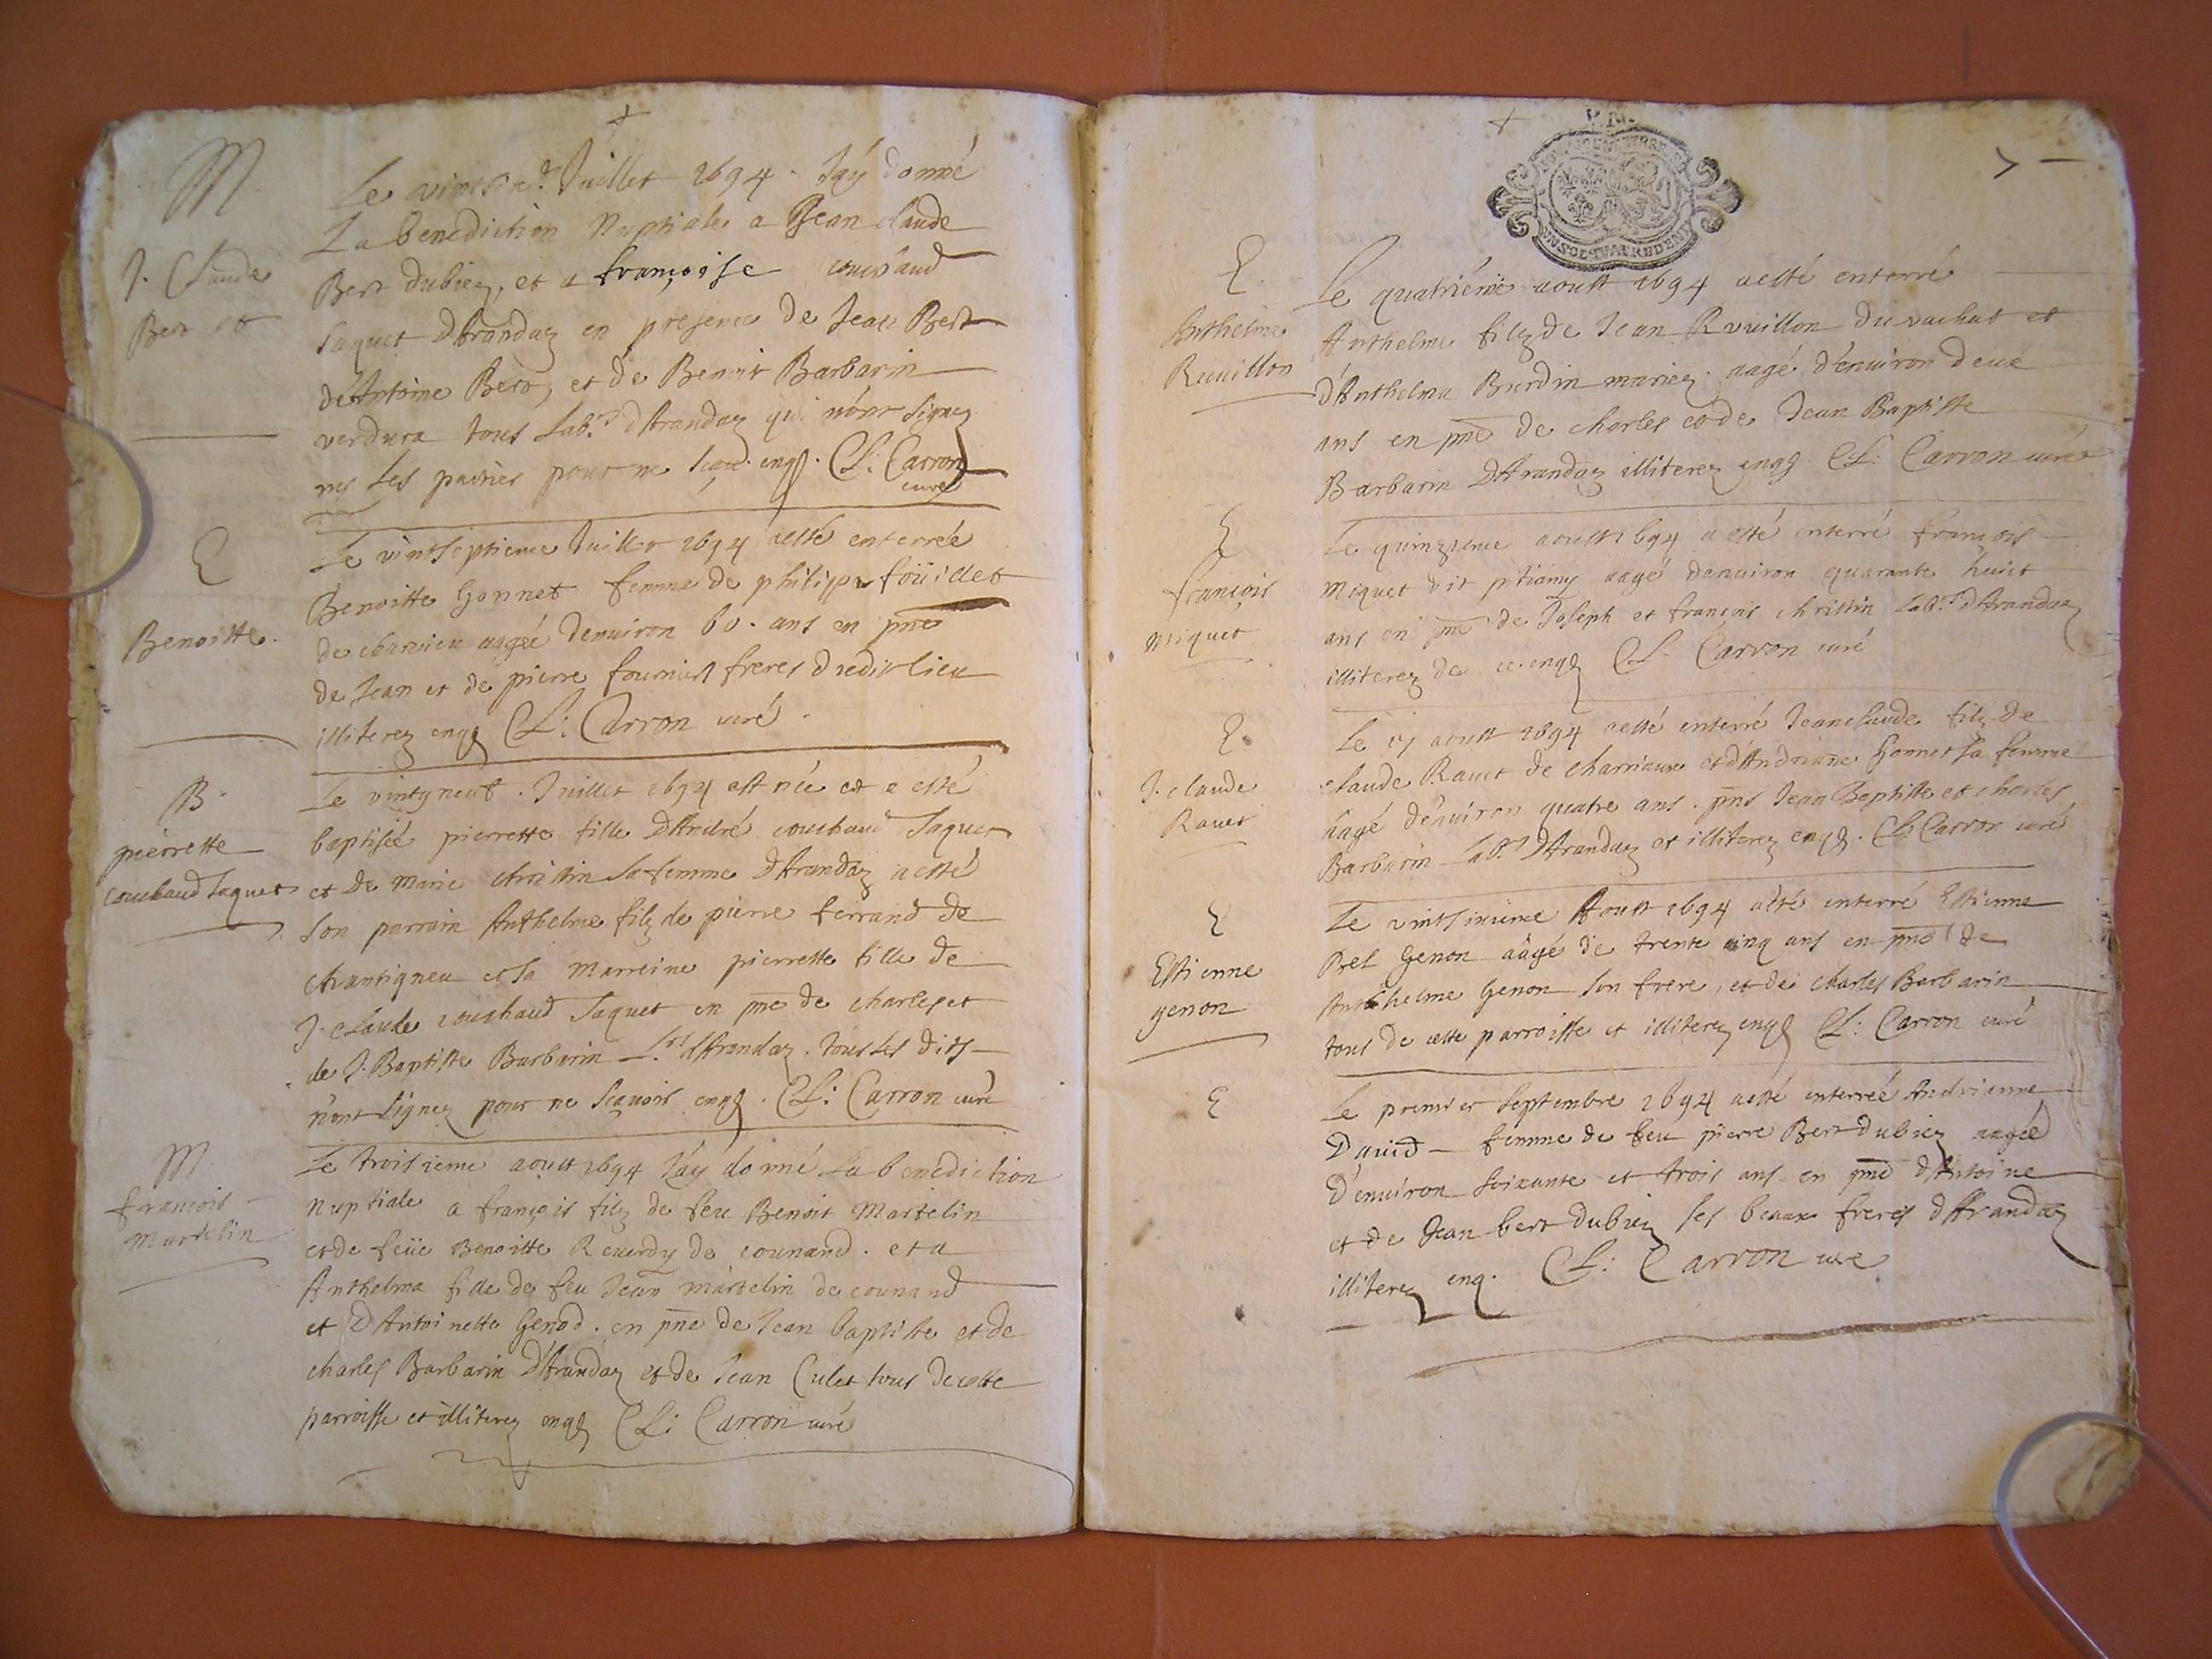 M.
J. Claude
Bert et
Le Juillet 1694. J'ay donné
La benediction Nuptiale a Jean claude
Bert dubiez, et a françoise couchaud
Jaquet d'Arandaz en presence de Jean Bert
d'Antoine Bert, et de Benoit Barbarin
verdura tous Lab.rs d'Arandaz qui n'ont signez
ny Les parties pour ne enq. Cl: Carron
curé
E
Benoitte.
Le vintseptieme Juillet 1694 a esté enterrée
Benoitte Gonnet femme de philippe foüillet
de charvieu aagée denuiron 60. ans en pnce
de Jean et de pierre fournier freres dudit lieu
illiterez enq. Cl: Carron curé.
B.
pierrette
couchaud Jaquet
Le vintyneuf. Juillet 1694 est née et a esté
baptisée pierrette fille d'André couchaud Jaquet
et de Marie christin sa femme d'Arandaz a esté
son parrain Anthelme filz de pierre ferrand de
chantigneu et sa marreine pierrette fille de
J. claude couchaud Jaquet en pnce de charles et
de J. Baptiste Barbarin L.rs d'Arandaz. tous les dits
n'ont signez pour ne sçavoir enq. Cl: Carron curé
M.
francois
Martelin
Le troisieme aoust 1694 J'ay donné La benediction
nuptiale a françois filz de feu Benoit Martelin
et de feüe Benoitte Reverdy de counand. et a
Anthelma fille de feu Jean martelin de counand
et d'Antoinette Genod. en pnce de Jean baptiste et de
charles Barbarin d'Arandaz et de Jean Culet tous de cette
parroisse et illiterez enq. Cl: Carron curé
7
E.
Anthelme
Ruuillon
Le quatriéme aoust 1694 a esté enterré
Anthelme filz de Jean Rvuillon du vachat et
d'Anthelma Burdin mariez. aagé d'enuiron deux
ans en pnce de charles et de Jean Baptiste
Barbarin d'Arandaz illiterez enq. Cl: Carron curé
E
francois
miquet
Le quinzieme aoust 1694 a esté enterré françois
Miquet dit aagé denuiron quarante huict
ans en pnce de Joseph et françois christin Lab.rs d'Arandaz
illiterez de ce enq. Cl. Carron curé
E.
J. claude
Ravet
Le aoust 1694 a esté enterré Jeanclaude filz de
claude Ravet de charvieux et d'Andrianne Gonnet sa femme
aagé d'enuiron quatre ans. pnts Jean Baptiste et charles
Barbarin Lab.rs d'Arandaz et illiterez enq. Cl: Carron curé
E
Estienne
genon
Le vintsixieme Aoust 1694 a esté enterré Estienne
Prel Genon aagé de trente cinq ans en pnce de
Anthelme Genon son frere, et de charles Barbarin
tous de cette parroisse et illiterez enq. Cl: Carron curé
E
Le premier septembre 1694 a esté enterrée Andrienne
David femme de feu pierre Bert dubiez aagée
d'enuiron soixante et trois ans en pnce d'Antoine
et de Jean bert dubiez ses beaux freres d'Arandaz
illiterez enq. Cl: Carron curé